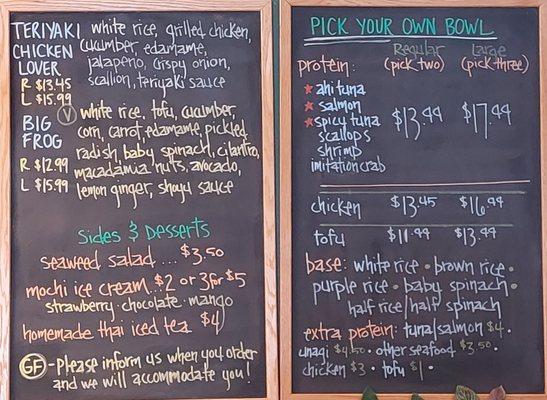 TERIYAKI CHICKEN LOVER
R $13.45
L $15.99
white rice, grilled chicken,
cucumber, edamame,
jalapeno, crispy onion,
scallion, teriyaki sauce
BIG FROG
R $12.99
L $15.99
V
white rice, tofu, cucumber,
corn, carrot, edamame, pickled
radish, baby spinach, cilantro,
macadamia nuts, avocado,
lemon ginger, shoyu sauce
Sides & Desserts
seaweed salad ... $3.50
mochi ice cream. $2 or 3 for $5
strawberry · chocolate · mango
homemade thai iced tea $4
GF - Please inform us when you order
and we will accommodate you!
PICK YOUR OWN BOWL
Regular Large
protein: (pick two) (pick three)
★ ahi tuna
★ salmon
★ spicy tuna $13.99 $17.99
scallops
shrimp
imitation crab
chicken $13.45 $16.99
tofu $11.99 $13.99
base: white rice · brown rice ·
purple rice · baby spinach ·
half rice/half spinach
extra protein: tuna/salmon $4 ·
unagi $4.50 · other seafood $3.50 ·
chicken $3 · tofu $1 ·